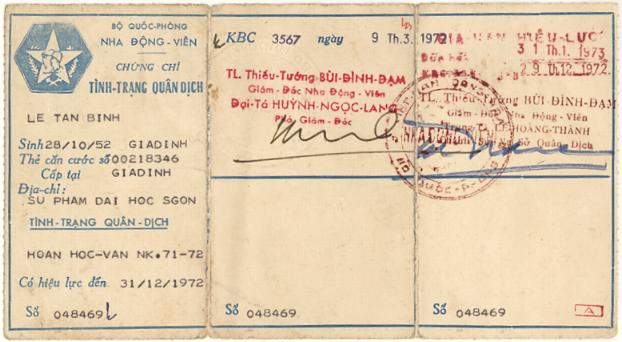 BỘ QUỐC-PHÒNG
NHA ĐỘNG-VIÊN
CHỨNG CHỈ
TÌNH-TRẠNG QUÂN DỊCH
LE TAN BINH
Sinh 28/10/52 GIADINH
Thẻ căn cước số 00218346
Cấp tại GIADINH
Địa-chỉ:
SU PHAM DAI HOC SGON
TÌNH-TRẠNG QUÂN-DỊCH
HOAN HOC-VAN NK.71-72
Có hiệu lực đến 31/12/1972
Số 048469
KBC 3567 ngày 9 Th.3 1972
TL. Thiếu-Tướng BÙI-ĐÌNH-ĐẠM
Giám-Đốc Nha Động-Viên
Đại-Tá HUỲNH-NGỌC-LANG
Phó Giám-Đốc
Số 048469
GIA-HẠN HIỆU-LỰC
31 Th.1 1973
29.Th.12.1972
TL. Thiếu-Tướng BÙI-ĐÌNH-ĐẠM
Giám-Đốc Nha Động-Viên
LÊ HOÀNG-THÀNH
Sở Quân Dịch
Số 048469
A